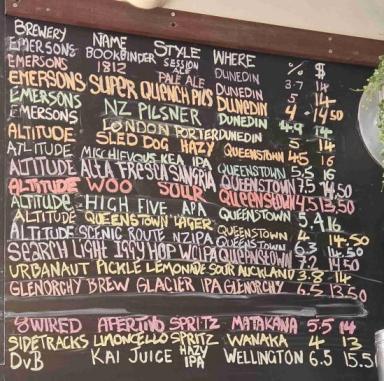 BREWERY NAME STYLE WHERE % $
EMERSONS BOOKBINDER SESSION ALE DUNEDIN 3.7 14
EMERSONS 1812 PALE ALE DUNEDIN 5 14
EMERSONS SUPER QUENCH PILS DUNEDIN 4. 14.50
EMERSONS NZ PILSNER DUNEDIN 4.9 14
EMERSONS LONDON PORTER DUNEDIN 5 14
ALTITUDE SLED DOG HAZY QUEENSTOWN 4.5 16
ALTITUDE MISCHIEVOUS KEA IPA QUEENSTOWN 5.5 16
ALTITUDE ALTA FRESCA SANGRIA QUEENSTOWN 7.5 14.50
ALTITUDE WOO SOUR QUEENSTOWN 4.5 13.50
ALTITUDE HIGH FIVE APA QUEENSTOWN 5.4 16
ALTITUDE QUEENSTOWN LAGER QUEENSTOWN 4 14.50
ALTITUDE SCENIC ROUTE NZIPA QUEENSTOWN 6.3 14.50
SEARCH LIGHT IGGY HOP WCIPA QUEENSTOWN 7.2 14.50
URBANAUT PICKLE LEMONADE SOUR AUCKLAND 3.8 14
GLENORCHY BREW GLACIER IPA GLENORCHY 6.5 13.50
8WIRED APERTINO SPRITZ MATAKANA 5.5 14
SIDETRACKS LIMONCELLO SPRITZ WANAKA 4 13
DVB KAI JUICE HAZY IPA WELLINGTON 6.5 15.50